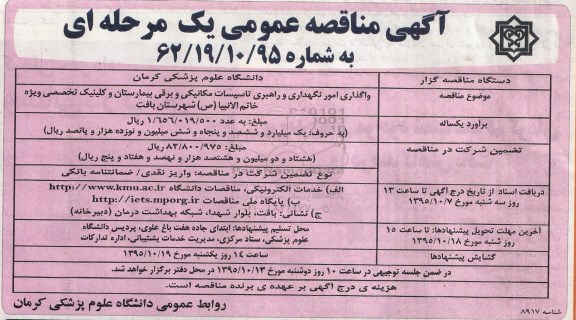 آگهی مناقصه عمومی یک مرحله ای
به شماره ۶۲/۱۹/۱۰/۹۵
دستگاه مناقصه گزار
دانشگاه علوم پزشکی کرمان
موضوع مناقصه
واگذاری امور نگهداری و راهبری تاسیسات مکانیکی و برقی بیمارستان و کلینیک تخصصی ویژه
خاتم الانبیا (ص) شهرستان بافت
برآورد یکساله
مبلغ: به عدد ۱/۶۵۶/۰۱۹/۵۰۰ ریال
(به حروف: یک میلیارد و ششصد و پنجاه و شش میلیون و نوزده هزار و پانصد ریال)
تضمین شرکت در مناقصه
مبلغ: ۸۲/۸۰۰/۹۷۵ ریال
(هشتاد و دو میلیون و هشتصد هزار و نهصد و هفتاد و پنج ریال)
نوع تضمین شرکت در مناقصه: واریز نقدی/ ضمانتنامه بانکی
دریافت اسناد از تاریخ درج آگهی تا ساعت ۱۳
روز سه شنبه مورخ ۱۳۹۵/۱۰/۷
الف) خدمات الکترونیکی، مناقصات دانشگاه http://www.kmu.ac.ir
ب) پایگاه ملی مناقصات http://iets.mporg.ir
ج) نشانی: بافت، بلوار شهدا، شبکه بهداشت درمان (دبیرخانه)
آخرین مهلت تحویل پیشنهادها: تا ساعت ۱۵
روز شنبه مورخ ۱۳۹۵/۱۰/۱۸
محل تسلیم پیشنهادها: ابتدای جاده هفت باغ علوی، پردیس دانشگاه
علوم پزشکی، ستاد مرکزی، مدیریت خدمات پشتیبانی، اداره تدارکات
گشایش پیشنهادها
ساعت ۱۴ روز یکشنبه مورخ ۱۳۹۵/۱۰/۱۹
در ضمن جلسه توجیهی در ساعت ۱۰ روز دوشنبه مورخ ۱۳۹۵/۱۰/۱۳ در محل دفتر برگزار خواهد شد.
هزینه ی درج آگهی بر عهده ی برنده مناقصه است.
شناسه ۸۹۱۷
روابط عمومی دانشگاه علوم پزشکی کرمان